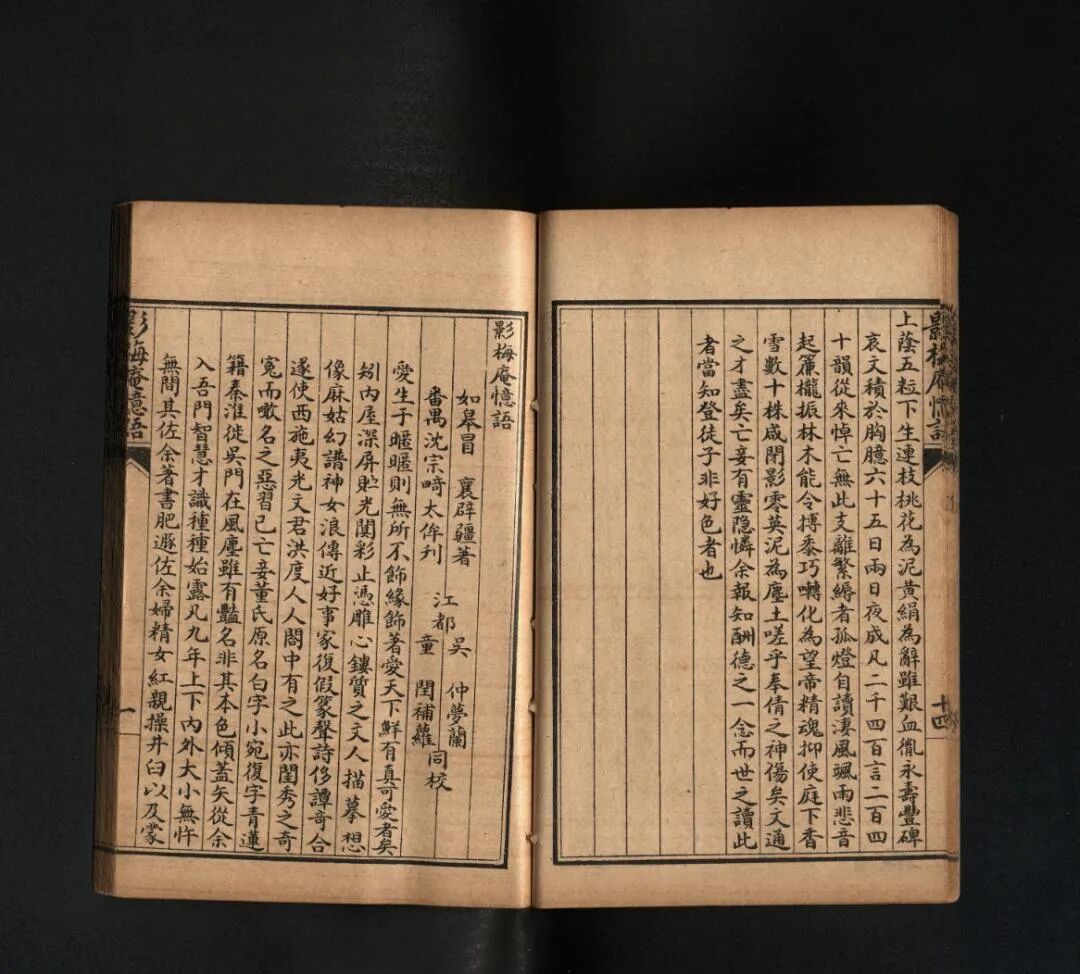 影梅庵憶語
十四
上蔭五粒下生連枝桃花為泥黃絹為辭雖艱血胤永壽豐碑
哀文積於胸臆六十五日兩日夜成凡二千四百言二百四
十韻從來悼亡無此支離繁縟者孤燈自讀淒風颯雨悲音
起簾櫳振林木能令搏黍巧囀化為望帝精魂抑使庭下香
雪數十株咸閉影零英泥為塵土嗟乎奉倩之神傷矣文通
之才盡矣亡妾有靈隐憐余報知酬德之一念而世之讀此
者當知登徒子非好色者也
影梅庵憶語
如皋冒 襄辟疆著
江都
吳 仲夢蘭
番禺沈宗畸太侔刊
童 閏補蘿
同校
愛生于暱暱則無所不飾緣飾著愛天下鮮有真可愛者矣
矧內屋深屏貯光闃彩止憑雕心鏤質之文人描摹想
像麻姑幻譜神女浪傳近好事家復假篆聲詩侈譚奇合
遂使西施夷光文君洪度人人閣中有之此亦閨秀之奇
冤而噉名之惡習已亡妾董氏原名白字小宛復字青蓮
籍秦淮徙吳門在風塵雖有豔名非其本色傾蓋矢從余
入吾門智慧才識種種始露凡九年上下內外大小無忤
無間其佐余著書肥遯佐余婦精女紅親操井臼以及蒙
影梅庵憶語
一